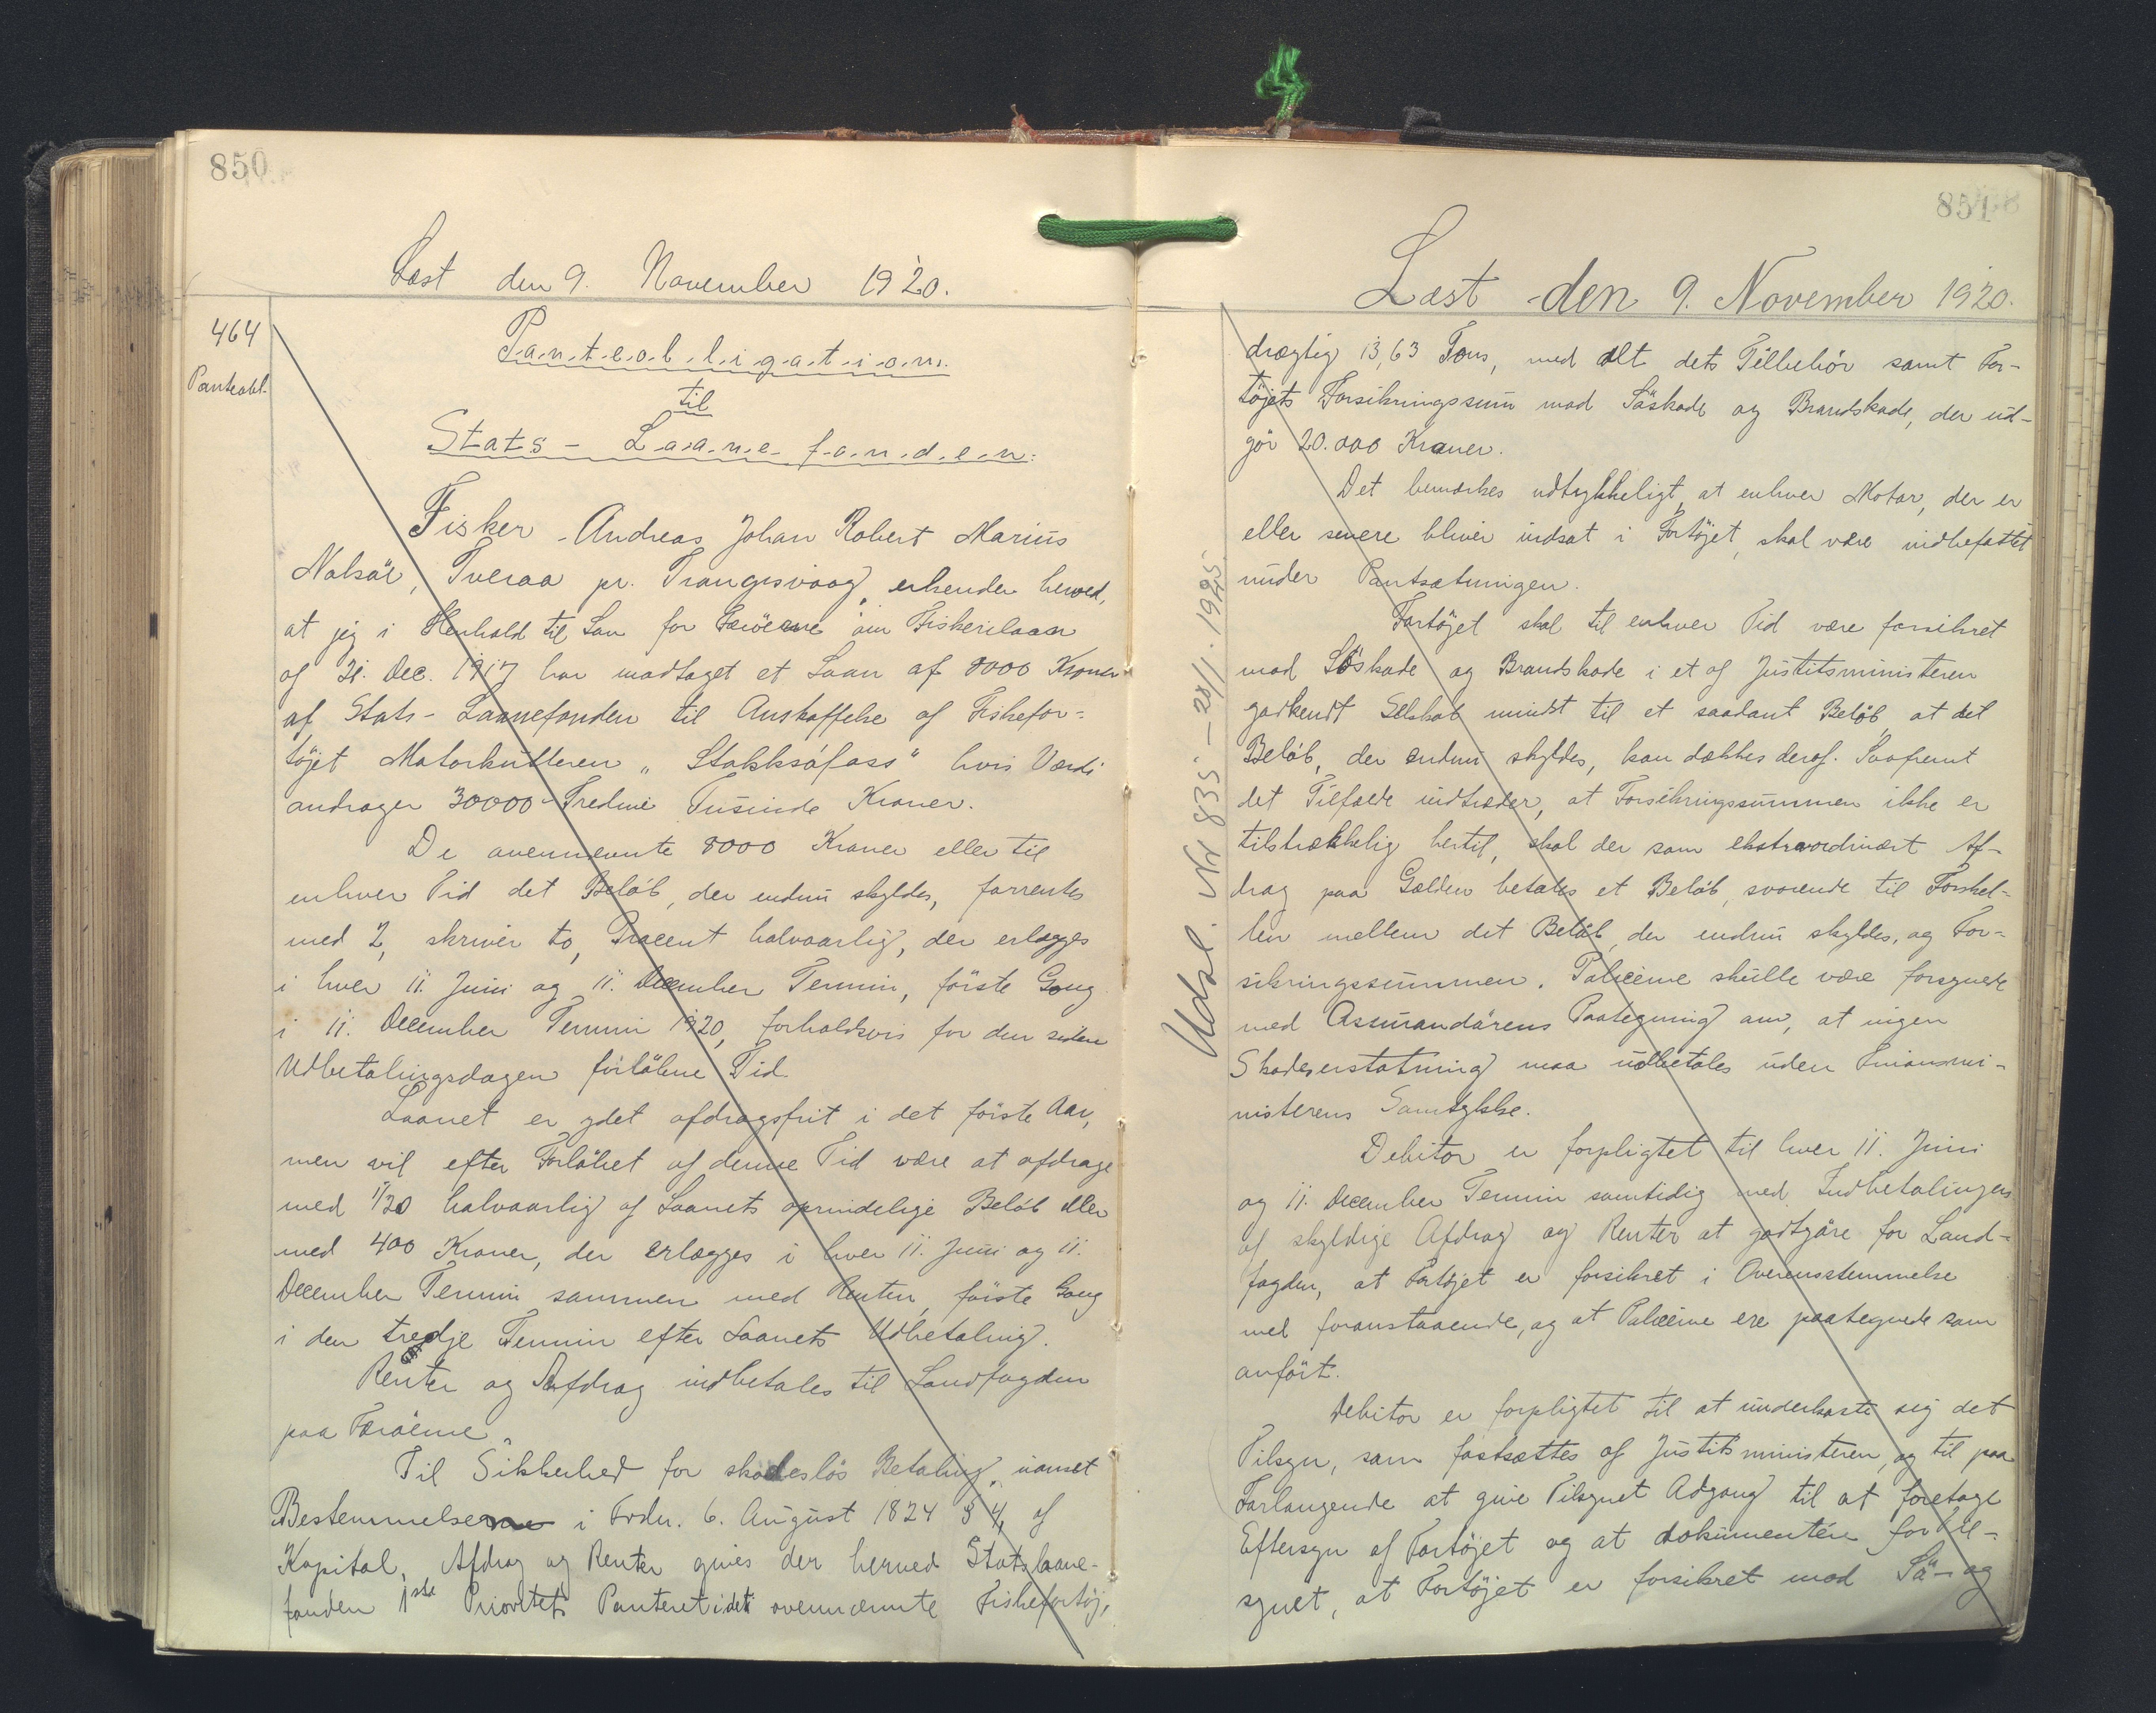 850
Læst den 9. November 1920.
464
Panteobl.
Panteobligation
til
Stats-Laanefonden:
Fisker Andreas Johan Robert Marius
Nolsøe, Tveraa pr. Trangisvaag, erkender herved,
at jeg i Henhold til Lov for Færöerne om Fiskerilaan
af 21. Dec. 1917 har modtaget et Laan af 8000 Kroner
af Stats-Laanefonden til Anskaffelse af Fiskefor-
töjet Motorkutteren "Stakksáfoss" hvis Værdi
andrager 30000 Tredive Tusinde Kroner.
De ovennævnte 8000 Kroner eller til
enhver Tid det Belöb, der endnu skyldes, forrentes
med 2, skriver to, Procent halvaarlig, der erlægges
i hver 11. Juni og 11. December Termin, förste Gang
i 11. December Termin 1920, forholdsvis for den siden
Udbetalingsdagen forløbne Tid.
Laanet er ydet afdragsfrit i det förste Aar,
men vil efter Forløbet af denne Tid være at afdrage
med 1/20 halvaarlig af Laanets oprindelige Belöb eller
med 400 Kroner, der erlægges i hver 11. Juni og 11.
December Termin sammen med Renten, förste Gang
i den tredje Termin efter Laanets Udbetaling.
Renter og Afdrag indbetales til Landfogden
paa Færöerne.
Til Sikkerhed for skadeslös Betaling, uanset
Bestemmelserne i Frdn. 6. August 1824 § 4, af
Kapital, Afdrag og Renter gives der herved Statslaane-
fonden 1ste Prioritets Panteret i det ovennævnte Fiskefartöj,
851
Læst den 9. November 1920.
drægtig 13,63 Tons, med alt dets Tilbehör samt For-
töjets Forsikringssum mod Söskade og Brandskade, der ud-
gör 20.000 Kroner.
Det bemærkes udtrykkeligt, at enhver Motor, der er
eller senere bliver indsat i Fartöjet, skal være indbefattet
under Pantsætningen.
Fartöjet skal til enhver Tid være forsikret
mod Söskade og Brandskade i et af Justitsministeren
godkendt Selskab mindst til et saadant Belöb, at det
Belöb, der endnu skyldes, kan dækkes deraf. Saafremt
det Tilfælde indtræder, at Forsikringssummen ikke er
tilstrækkelig hertil, skal der som ekstraordinært Af-
drag paa Gælden betales et Belöb, svarende til Forskel-
len mellem det Belöb, der endnu skyldes, og For-
sikringssummen. Policerne skulle være forsynede
med Assurandörens Paategning om, at ingen
Skadeserstatning maa udbetales uden Finansmi-
nisterens Samtykke.
Debitor er forpligtet til hver 11. Juni
og 11. December Termin samtidig med Indbetalingen
af skyldige Afdrag og Renter at godtgöre for Land-
fogden, at Fartöjet er forsikret i Overensstemmelse
med foranstaaende, og at Policerne ere paategnede som
anfört.
Debitor er forpligtet til at underkaste sig det
Tilsyn, som fastsættes af Justitsministeren, og til paa
Forlangende at give Tilsynet Adgang til at foretage
Eftersyn af Fartöjet og at dokumentere for Til-
synet, at Fartöjet er forsikret mod Sö- og
Udsl. Nr 835 - 28/1. 1925.